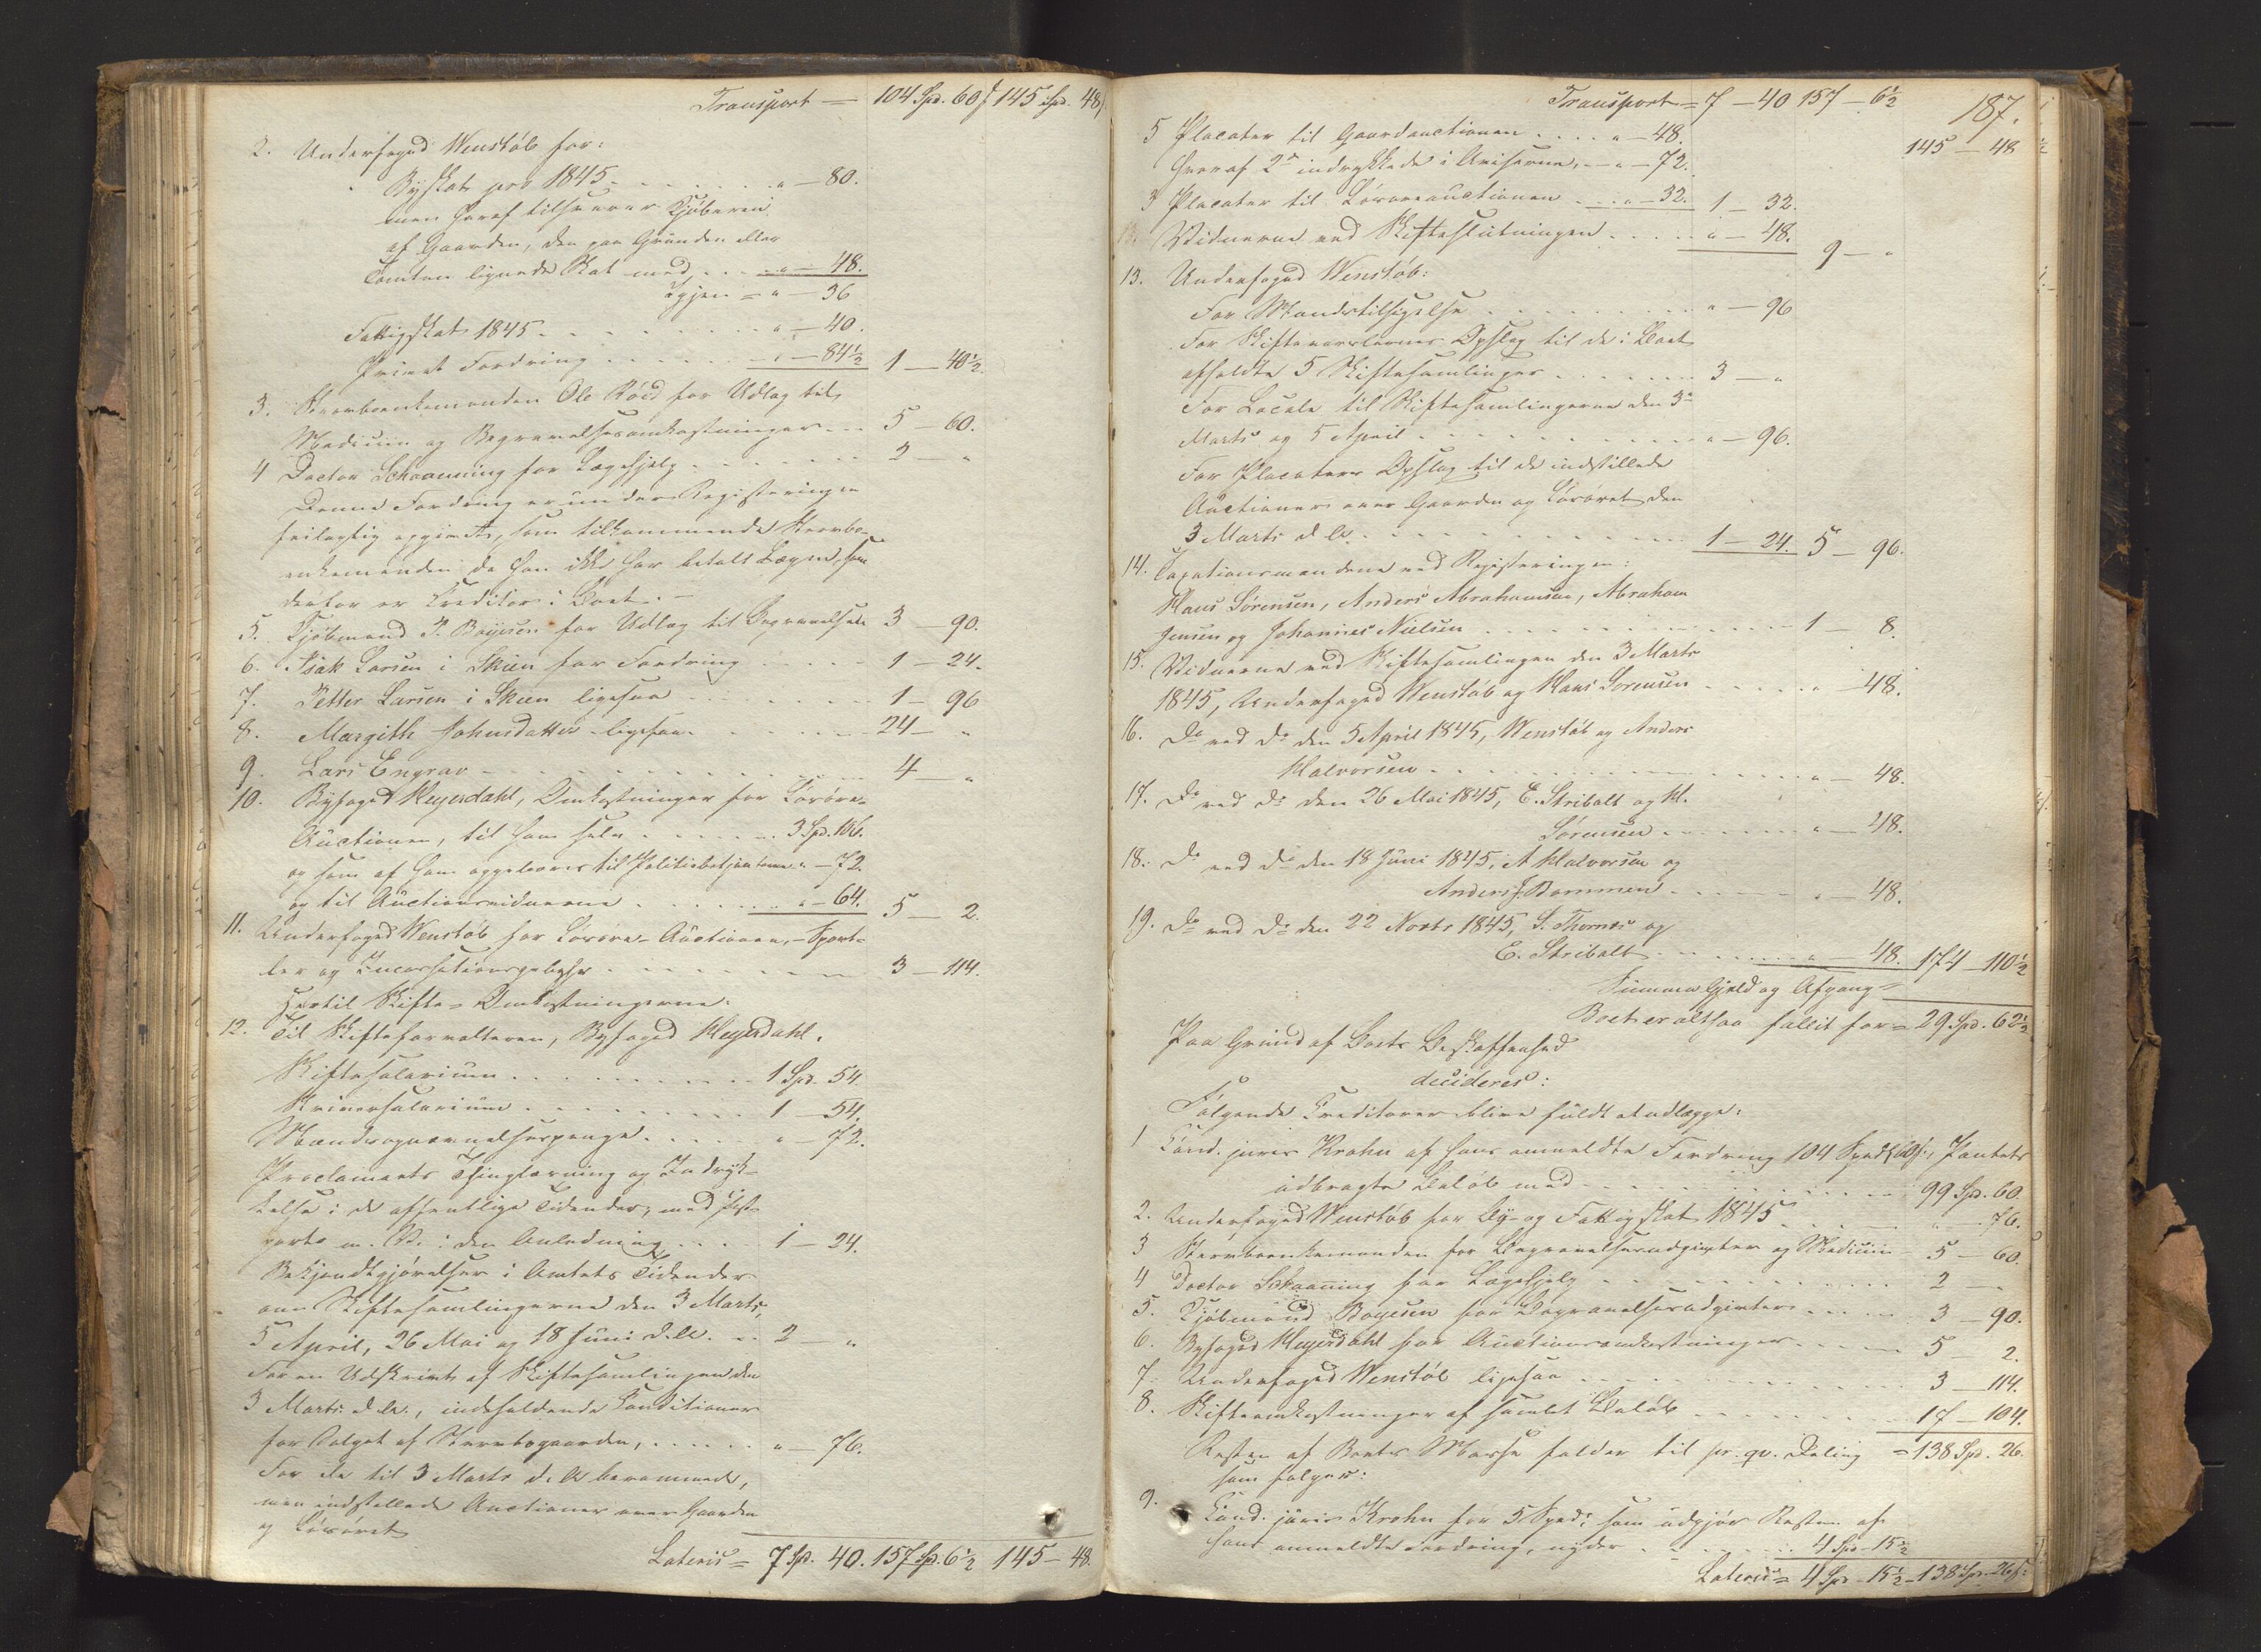 Transport = 104 Spd. 60 ß 145 Spd. 48 ß
2. Underfoged Wenstøb for:
Byskat pro 1845 . . . . . . . " — 80.
men heraf tilsvarer Kjøberen
af Gaarden, den paa Grunden eller
Tomten lignede Skat med . . . " — 48.
Igjen = " — 36
Fattigskat 1845 . . . . . . . . " — 40.
Privat Fordring . . . . . . " — 84½ 1 — 40½.
3. Stervboenkemanden Ole Röed for Udlæg til
Medicin og Begravelsesomkostninger . . . 5 — 60.
4 Doctor Schaanning for Lægehjelp . . . . . . . 2 — "
Denne Fordring er under Registeringen
feilagtig opgivet, som tilkommende Stervbo-
enkemanden da han ikke har betalt Lægen, som
derfor er Creditor i Boet. —
5. Kjøbmand P. Boyesen for Udlæg til Begravelsen 3 — 90.
6. Isak Larsen i Skien for Fordring . . . . . 1 — 24.
7. Petter Larsen i Skien ligesaa . . . . . . . 1 — 96
8. Margith Johnsdatter ligesaa . . . . . . 24 — "
9. Lars Engrav . . . . . . . . . . . . 4 — "
10. Byfoged Heyerdahl, Omkostninger for Løsøre-
Auctionen, til ham selv . . . . . . 3 Spd. 106.
og som af ham oppebæres til Politiebetjentene " — 72.
og til Auctionsvidnerne . . . . . . " — 64. 5 — 2.
11. Underfoged Wenstøb for Løsøre-Auctionen, Sport-
ler og Incassationsgebyhr . . . . . . . . 3 — 114.
Hertil Skifte-Omkostningerne:
12. Til Skifteforvalteren, Byfoged Heyerdahl.
Skiftesalarium . . . . . . . . . 1 Spd. 54.
Skriversalarium . . . . . . . . 1 — 54.
Mændsopnævnelsespenge . . . . . " — 72.
Proclamaets Thinglæsning og Indryk-
kelse i de offentlige Tidender, med Post-
porto m. V. i den Anledning . . . 1 — 24.
Bekjendtgjørelser i Amtets Tidende
om Skiftesamlingerne den 3 Marts,
5 April, 26 Mai og 18 Juni d. A. . . 2 — "
For en Udskrivt af Skiftesamlingen den
3 Marts d. A., indeholdende Conditioner
for Salget af Stervbogaarden, . . . . . " — 76.
For de til 3 Marts d. A. berammede,
men indstillede Auctioner over Gaarden
og Løsøret
Lateris = 7 Sp. 40. 157 Sp. 6½ 145 — 48.
187.
Transport = 7 — 40 157 — 6½
145 — 48
5 Placater til Gaardauctionen . . . . " — 48.
heraf 2de indrykkede i Aviserne, — " — 72.
3 Placater til Løsøreauctionen . . . " — 32. 1 — 32.
Vidnerne ved Skifteslutningen . . . . " — 48. 9 — "
13. Underfoged Wenstøb:
For Mændstilsigelse . . . . . . . . . " — 96
For Skiftevarslernes Opslag til de i Boet
afholdte 5 Skiftesamlinger . . . . . . . 3 — "
For Locale til Skiftesamlingerne den 3de
Marts og 5 April . . . . . . . . . . . " — 96.
For Placaters Opslag til de indstillede
Auctioner over Gaarden og Løsøret den
3 Marts d. A. . . . . . . . . . . . . 1 — 24. 5 — 96.
14. Taxationsmændene ved Registeringen:
Hans Sörensen, Anders Abrahamsen, Abraham
Jensen og Johannes Nielsen . . . . . . . . . 1 — 8.
15. Vidnerne ved Skiftesamlingen den 3 Marts
1845, Underfoged Wenstøb og Hans Sorensen . . . . " — 48.
16. Do ved Do den 5 April 1845, Wenstøb og Anders
Halvorsen . . . . . . . . . . . . . . " — 48.
17. Do ved Do den 26 Mai 1845, E. Stribolt og H.
Sörensen . . . . . . . " — 48.
18. Do ved Do den 18 Juni 1845, A Halvorsen og
Anders J. Bommen . . . . . . " — 48.
19. Do ved Do den 22 Novbr 1845, S. Thornes og
E. Stribolt . . . . . . . " — 48. 174 — 110½
Summa Gjeld og Afgang =
Boet er altsaa fallit for = 29 Spd. 62½
Paa Grund af Boets Beskaffenhed
decideres:
Følgende Creditorer blive fuldt at udlægge:
1 Cand. juris Krohn af hans anmeldte Fordring 104 Spd. 60 ß, Pantets
udbragte Beløb med . . . . . . . . . . . 99 Spd. 60.
2. Underfoged Wenstøb for By- og Fattigskat 1845 . . . . " — 76.
3 Stervboenkemanden for Begravelsesudgivter og Medicin — 5 — 60.
4 Doctor Schaanning for Lægehjelp . . . . . . . . . . . 2 — "
5. Kjøbmand Boyesen for Begravelsesudgivter . . . . . 3 — 90.
6. Byfoged Heyerdahl for Auctionsomkostninger . . . . . 5 — 2.
7. Underfoged Wenstøb ligesaa . . . . . . . . . . . . 3 — 114.
8. Skifteomkostninger af samlet Beløb . . . . . . . . . 17 — 104.
Resten af Boets Masse falder til pr. qv. Deling = 138 Spd. 26.
som følger:
9. Cand. juris Krohn for 5 Spd. som udgjør Resten af
hans anmeldte Fordring, nyder . . . . . . 4 Spd — 15½
Lateris = 4 Spd — 15½ — 138 Spd. 26 ß.